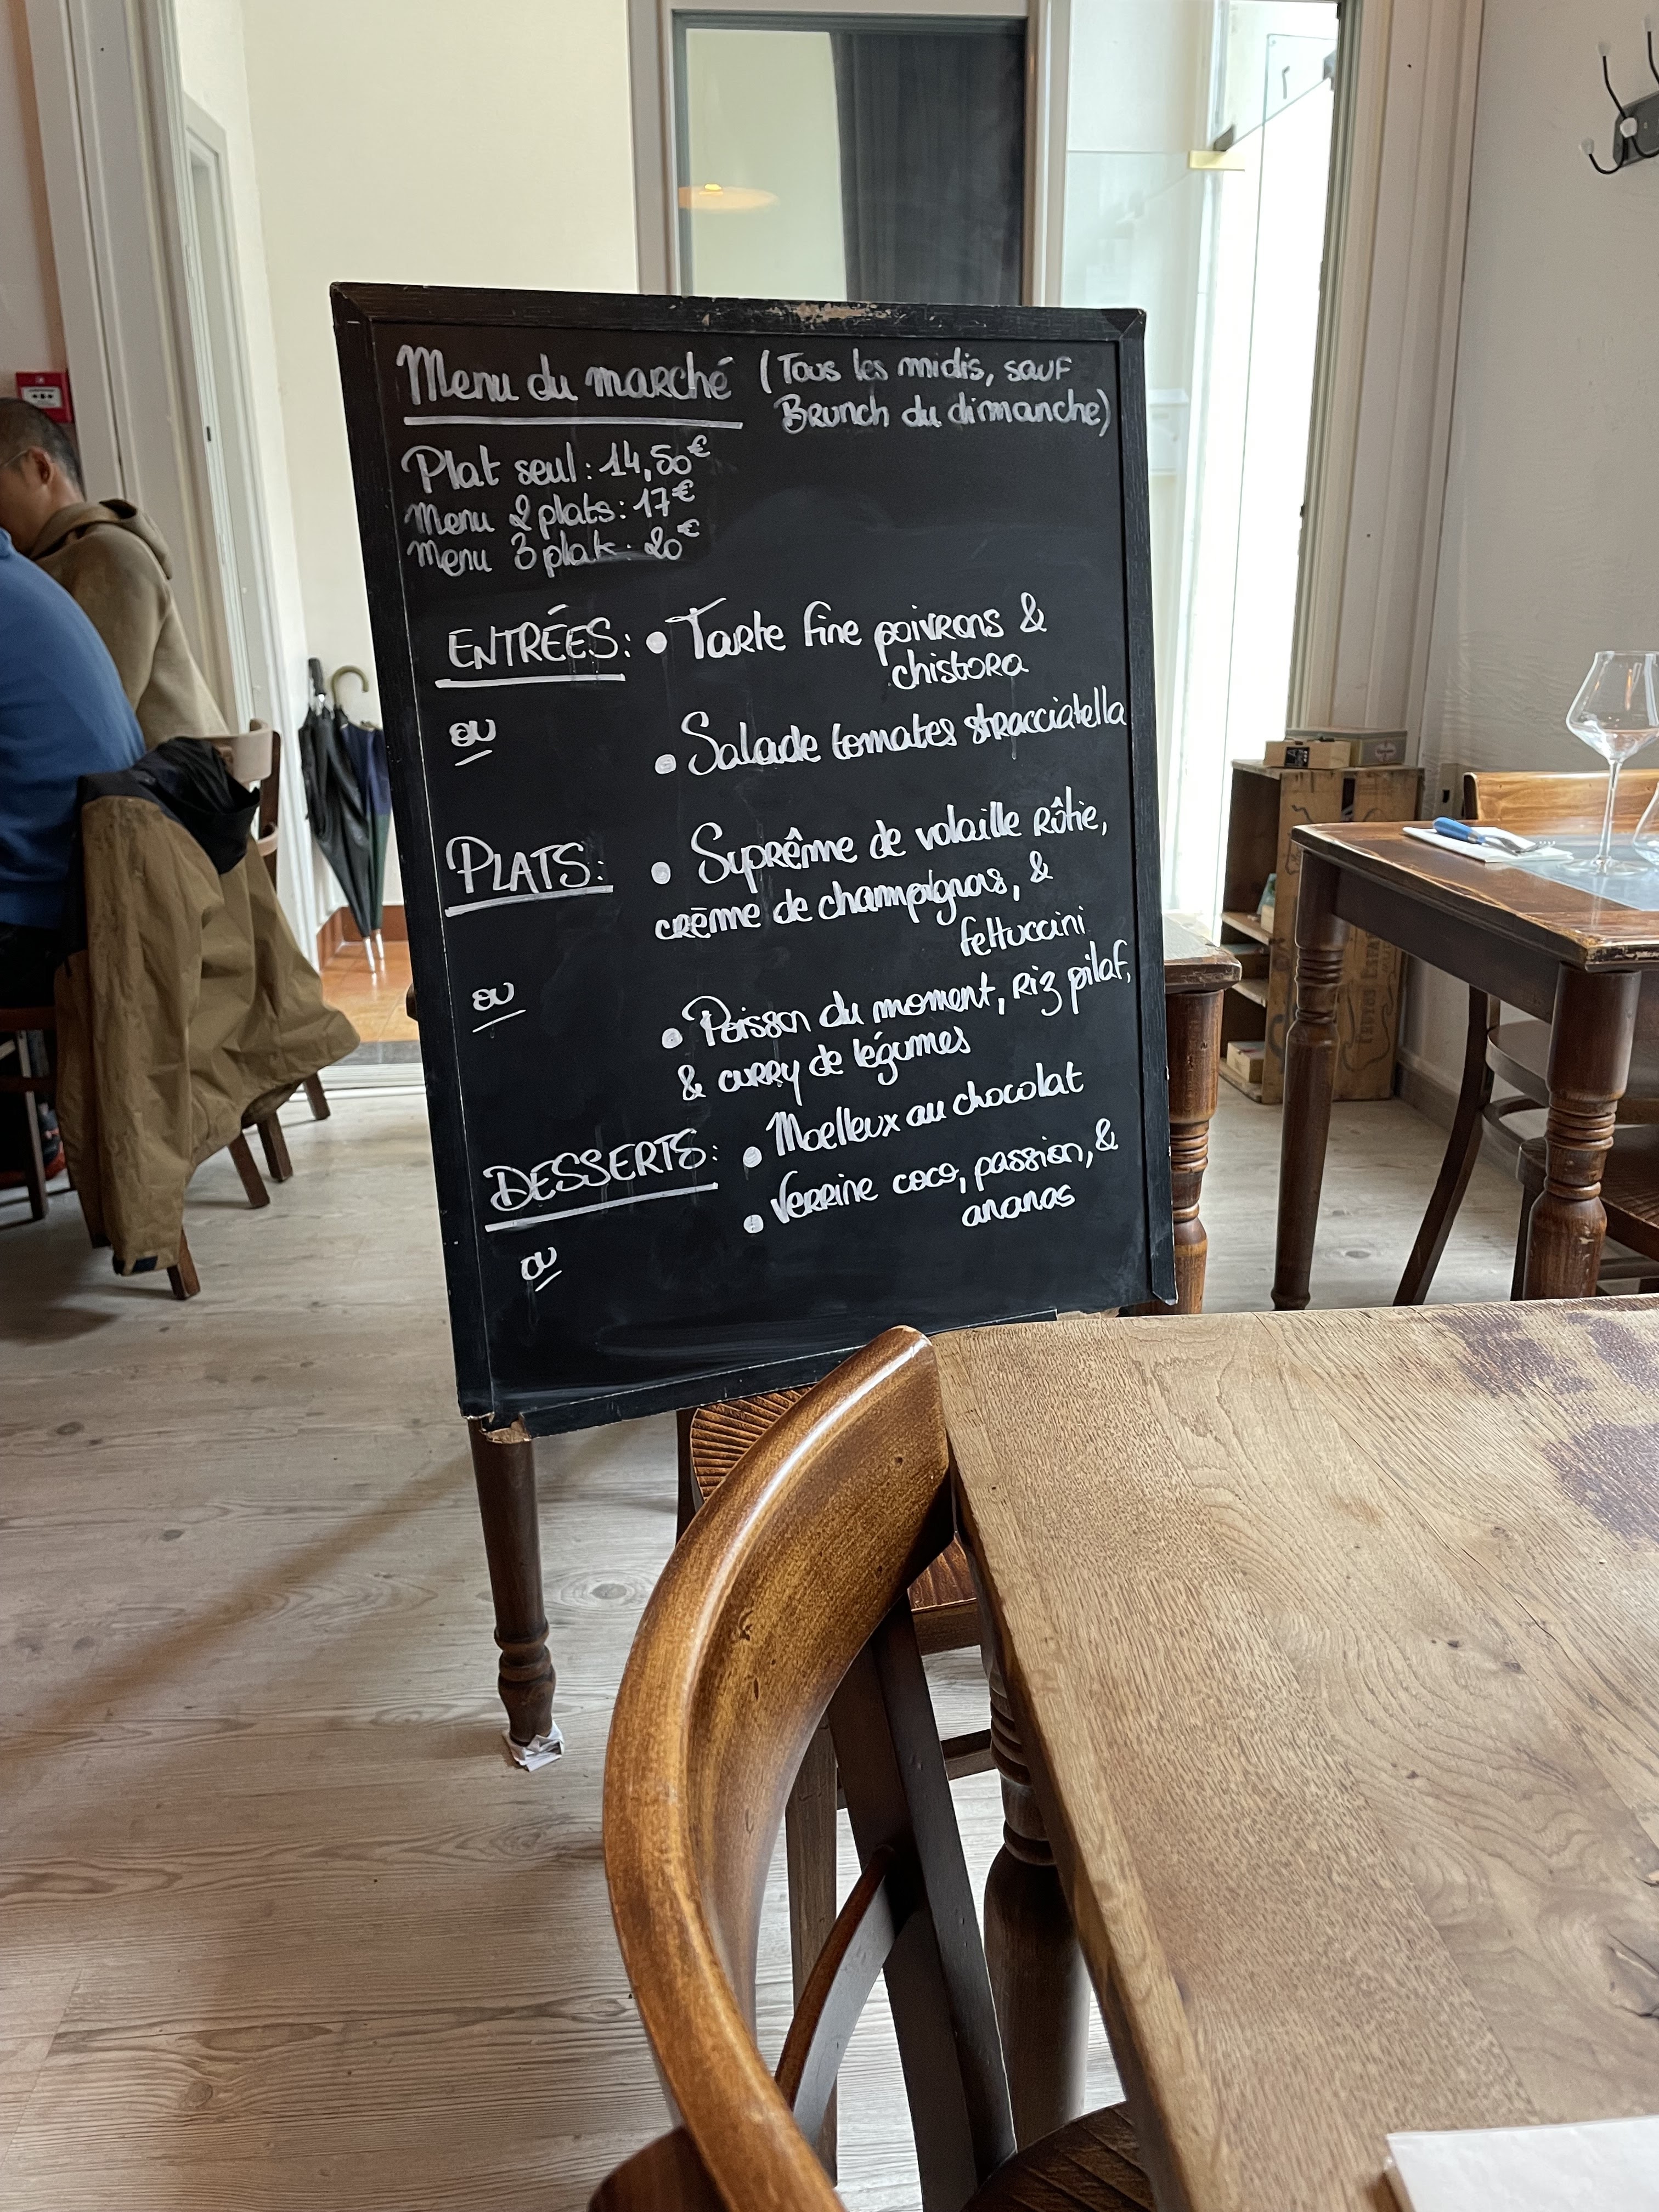 Menu du marché (Tous les midis, sauf
Brunch du dimanche)
Plat seul: 14,50€
Menu 2 plats: 17€
Menu 3 plats: 20€
ENTRÉES: • Tarte fine poivrons &
chistora
ou
• Salade tomates stracciatella
PLATS: • Suprême de volaille rôtie,
crème de champignons, &
fettuccini
ou
• Poisson du moment, riz pilaf,
& curry de légumes
DESSERTS: • Moelleux au chocolat
• Verrine coco, passion, &
ananas
ou